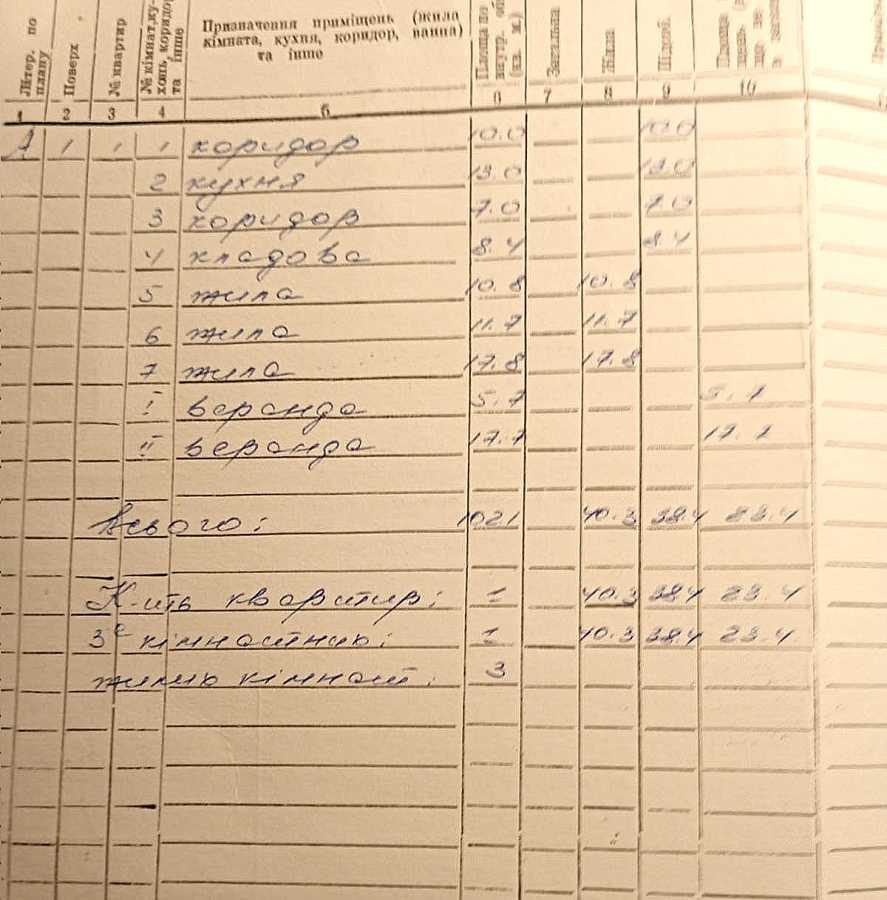 Літер. по плану
Поверх
№ квартир
№ кімнат, ку-
хонь, коридор
та інше
Призначення приміщень (жила
кімната, кухня, коридор, ванна)
та інше
Площа по
внутр.
(кв. м.)
Загальна
Жила
Підсоб.
Площа
1 2 3 4 5 6 7 8 9 10
А 1 1 1 коридор 10.0 10.0
2 кухня 13.0 13.0
3 коридор 7.0 7.0
4 кладова 8.4 8.4
5 жила 10.8 10.8
6 жила 11.7 11.7
7 жила 17.8 17.8
I веранда 5.7 5.7
II веранда 17.7 17.7
Всього: 102.1 40.3 38.4 23.4
К-ить квартир: 1 40.3 38.4 23.4
3х кімнатних: 1 40.3 38.4 23.4
жилих кімнат: 3